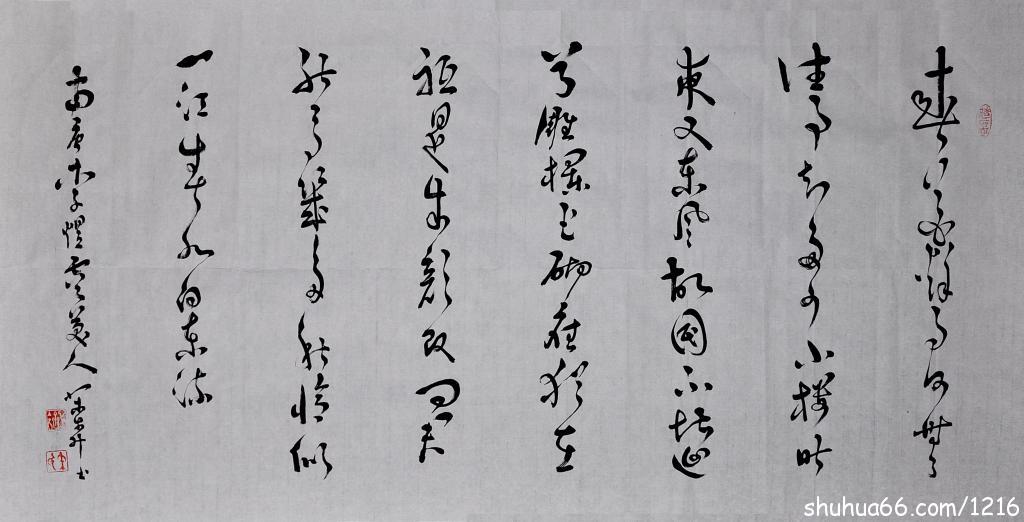 春花秋月何時了
往事知多少小樓昨
夜又東風故國不堪回
首雕欄玉砌應猶在
祗是朱顏改問君
能有幾多愁恰似
一江春水向東流
南唐李煜虞美人 書
shuhua66.com/1216